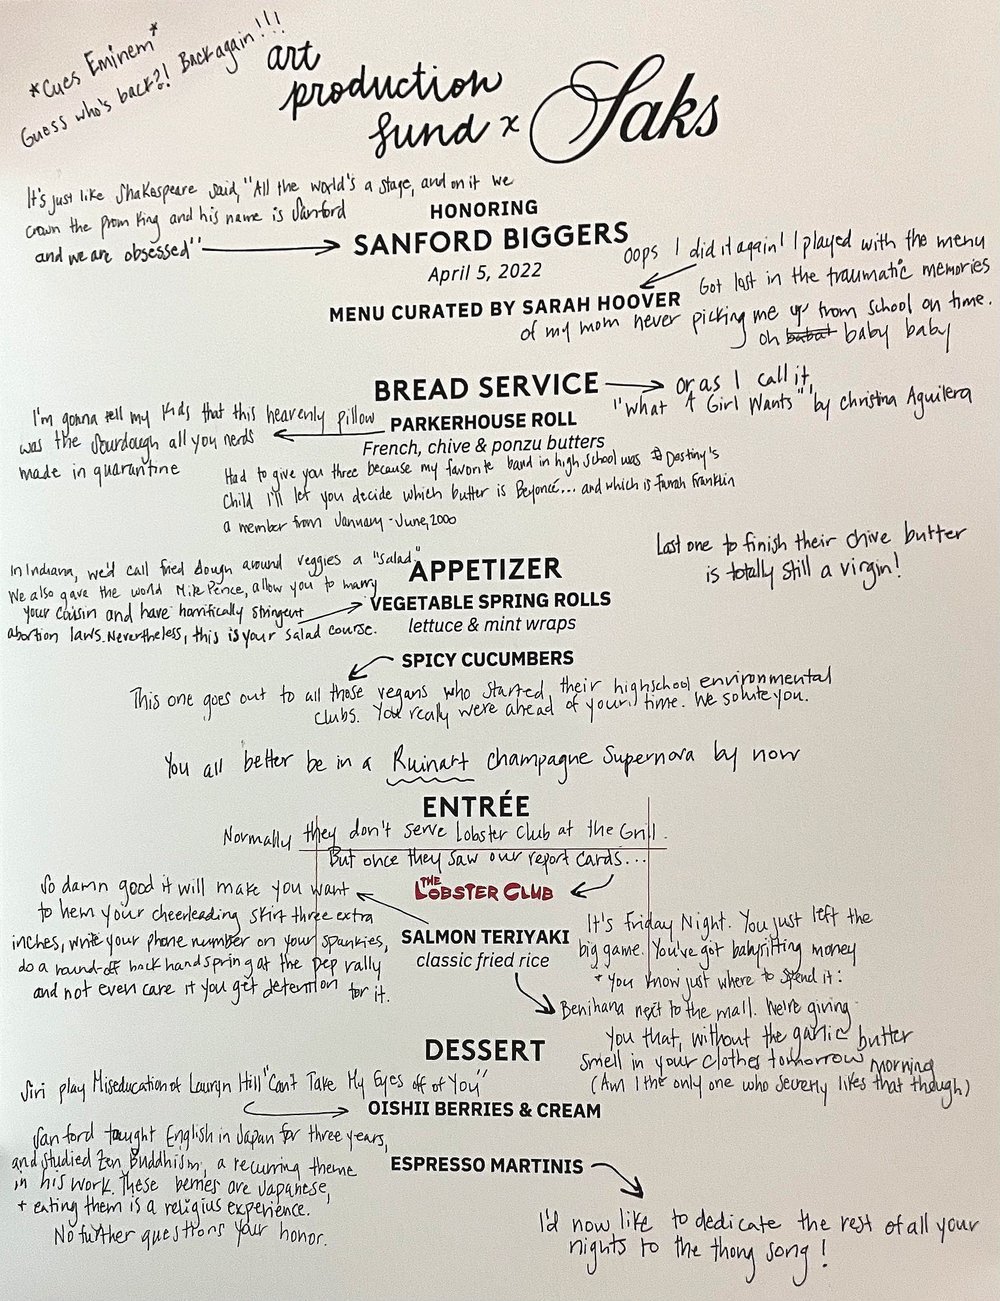 *Cues Eminem*
Guess who's back?! Back again!!!
art
production
fund x Saks
It's just like Shakespeare said, "All the world's a stage, and on it we
crown the Prom King and his name is Sanford
and we are obsessed"
HONORING
SANFORD BIGGERS
April 5, 2022
MENU CURATED BY SARAH HOOVER
Oops I did it again! I played with the menu
Got lost in the traumatic memories
of my mom never picking me up from school on time.
oh baby baby
BREAD SERVICE
or as I call it,
"What A Girl Wants" by Christina Aguilera
I'm gonna tell my kids that this heavenly pillow
was the sourdough all you nerds
made in quarantine
PARKERHOUSE ROLL
French, chive & ponzu butters
Had to give you three because my favorite band in high school was Destiny's
Child I'll let you decide which butter is Beyoncé... and which is Farah Franklin
a member from January - June, 2000
Last one to finish their chive butter
is totally still a virgin!
In Indiana, we'd call fried dough around veggies a "salad."
We also gave the world Mike Pence, allow you to marry
your cousin and have horrifically stringent
abortion laws. Nevertheless, this is your salad course.
APPETIZER
VEGETABLE SPRING ROLLS
lettuce & mint wraps
SPICY CUCUMBERS
This one goes out to all those vegans who started their highschool environmental
clubs. You really were ahead of your time. We solute you.
You all better be in a Ruinart champagne Supernova by now
ENTRÉE
Normally they don't serve Lobster Club at the Grill.
But once they saw our report cards...
THE LOBSTER CLUB
So damn good it will make you want
to hem your cheerleading skirt three extra
inches, write your phone number on your spankies,
do a round-off back handspring at the pep rally
and not even care if you get detention for it.
SALMON TERIYAKI
classic fried rice
It's Friday Night. You just left the
big game. You've got babysitting money
+ you know just where to spend it:
Benihana next to the mall. We're giving
you that, without the garlic butter
smell in your clothes tomorrow morning
(Am I the only one who severly likes that though)
DESSERT
Siri play Miseducation of Lauryn Hill "Can't Take My Eyes off of You"
OISHII BERRIES & CREAM
Sanford taught English in Japan for three years,
and studied Zen Buddhism, a recurring theme
in his work. These berries are Japanese,
+ eating them is a religius experience.
No further questions your honor.
ESPRESSO MARTINIS
I'd now like to dedicate the rest of all your
nights to the thong song!